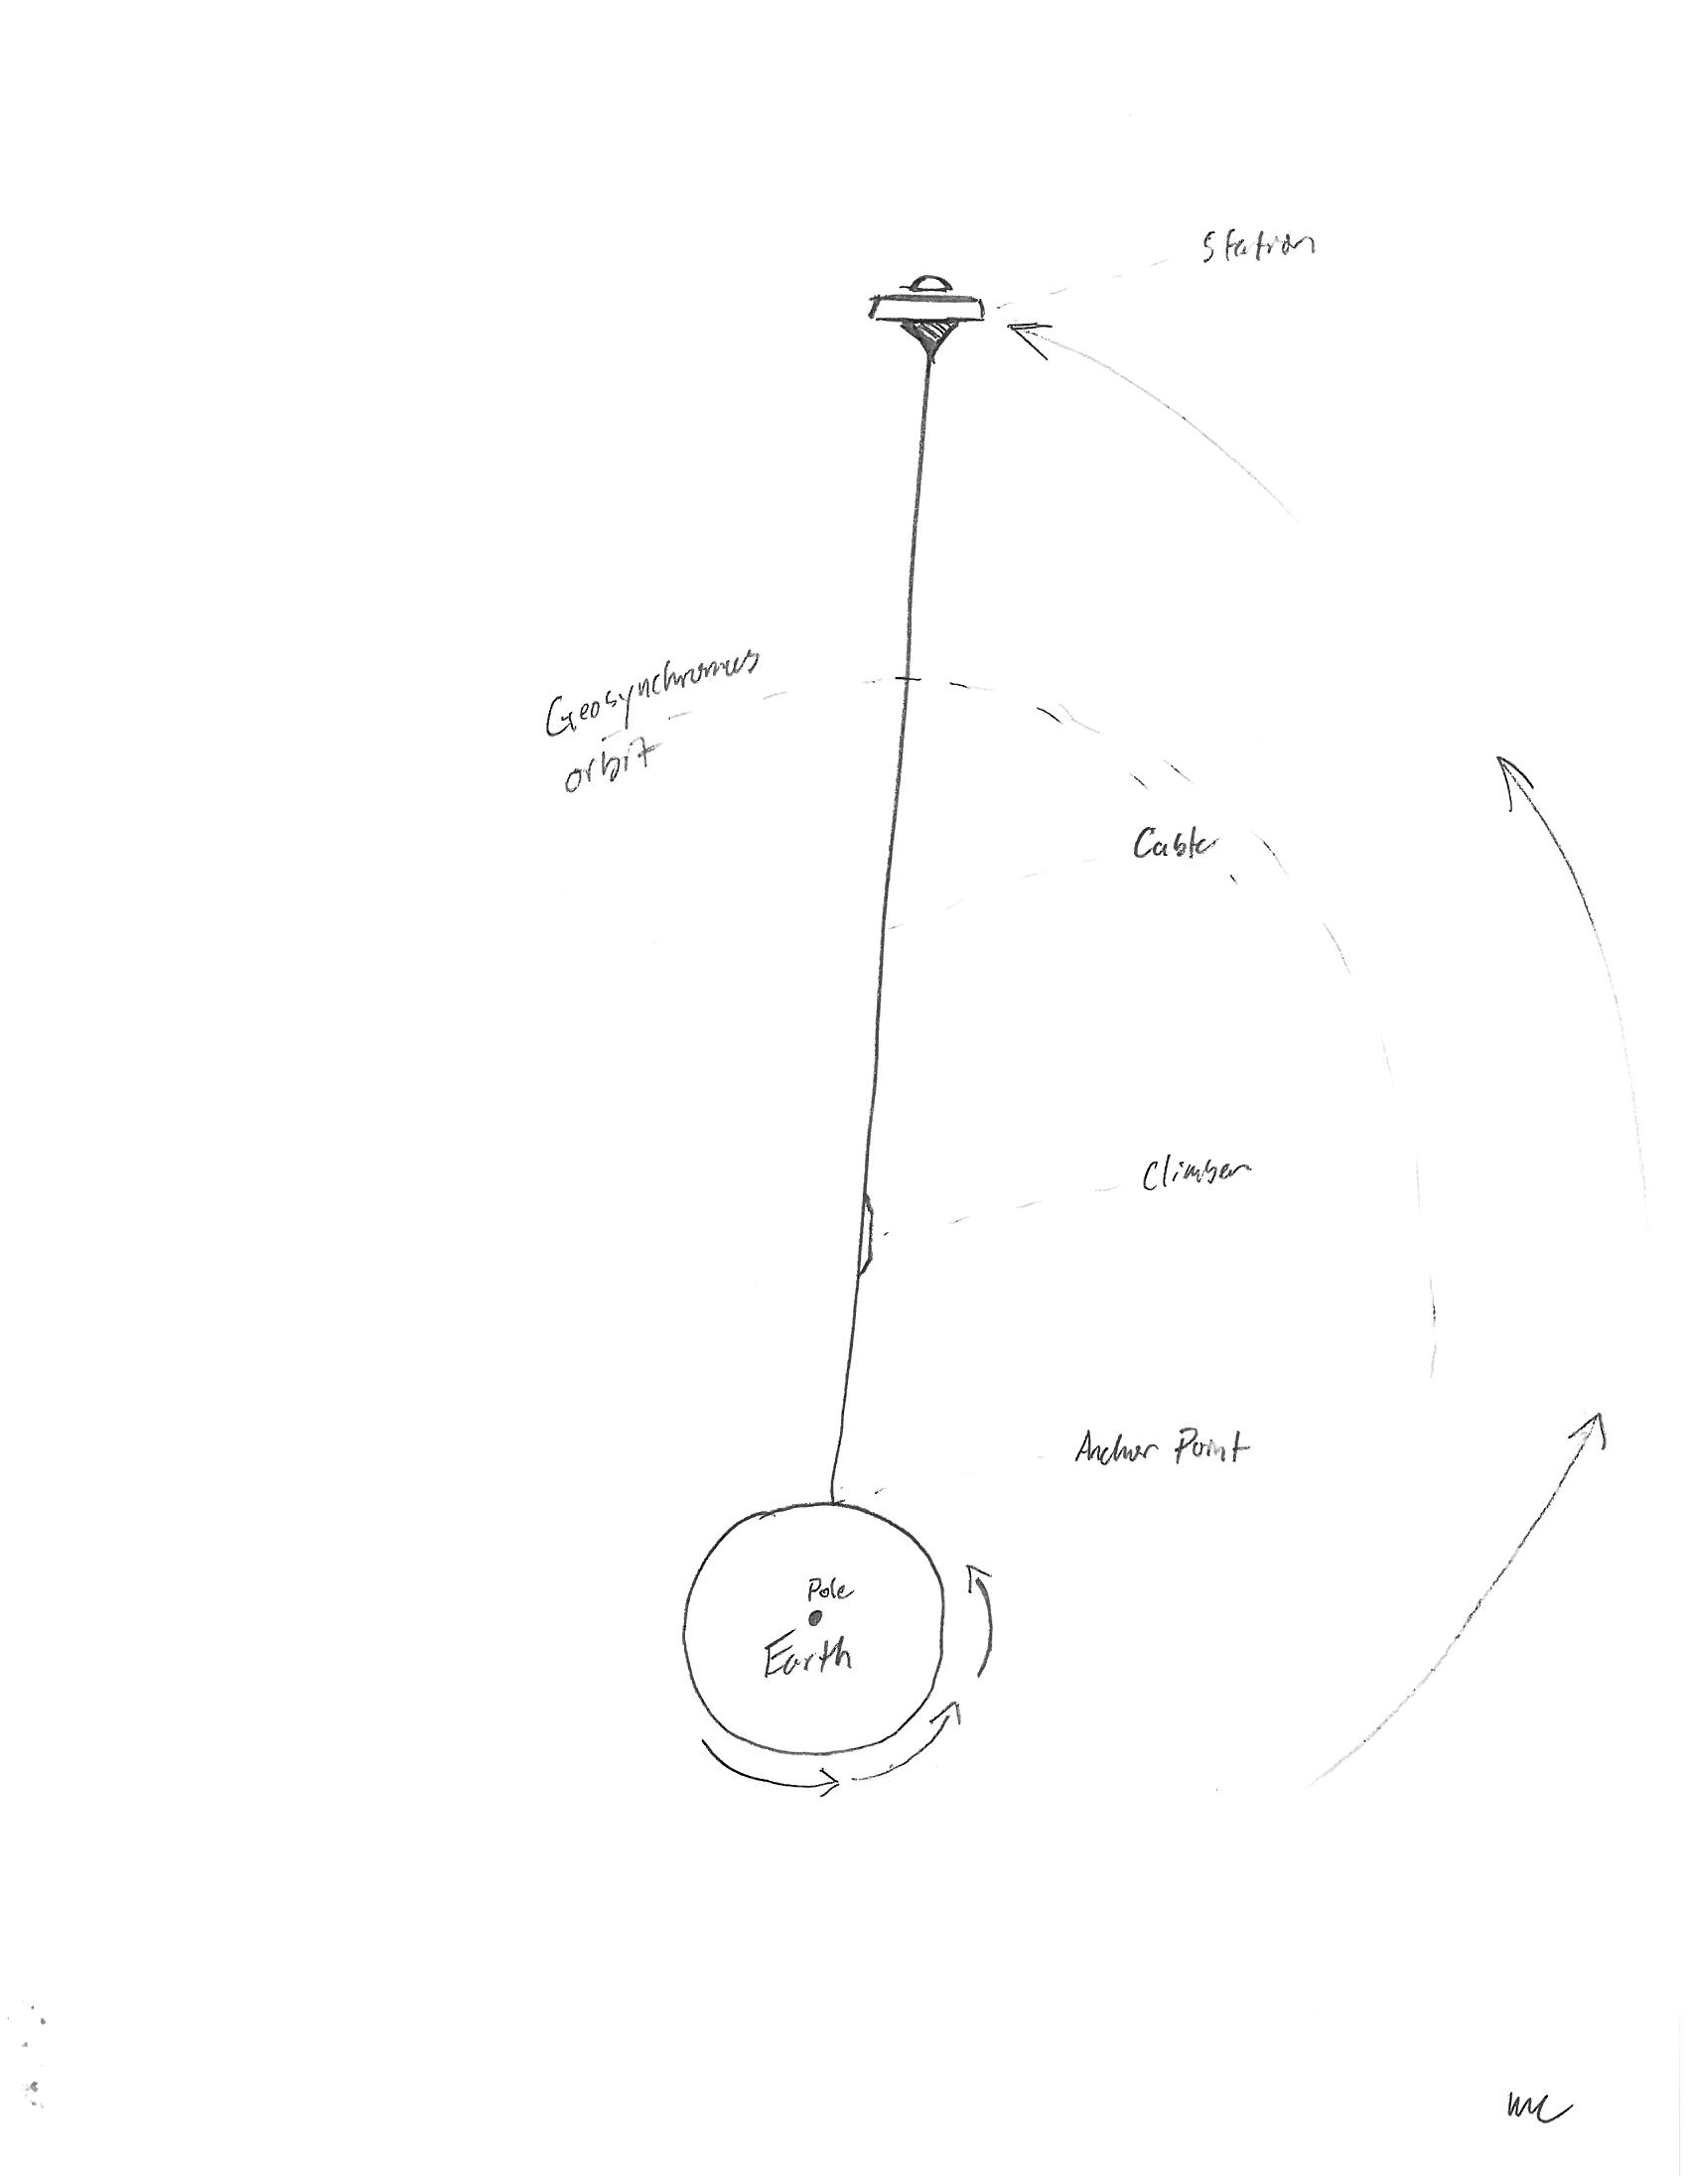 Station
Geosynchronous
orbit
Cable
Climber
Anchor Point
Pole
Earth
mc